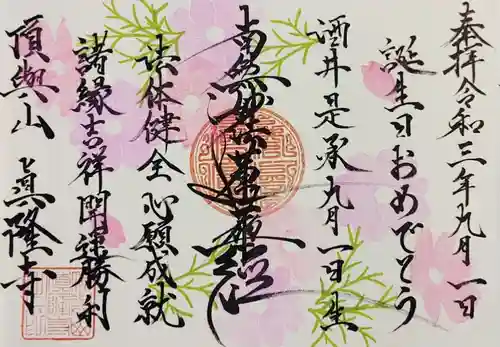 奉拝令和三年九月一日
誕生日おめでとう
酒井是承九月一日生
南無妙法蓮華経
諸縁吉祥開運勝利
頂與山
眞隆寺